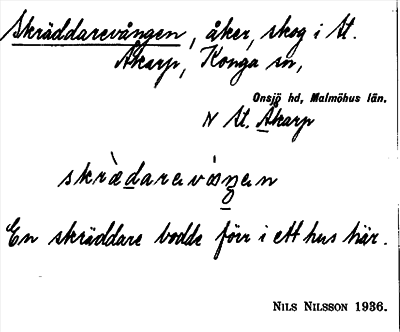 Skräddarevången, åker, skog i St.
Åkarp, Konga sn,
Onsjö hd, Malmöhus län.
N St. Åkarp
skrædarevåŋen
En skräddare bodde förr i ett hus här.
NILS NILSSON 1936.